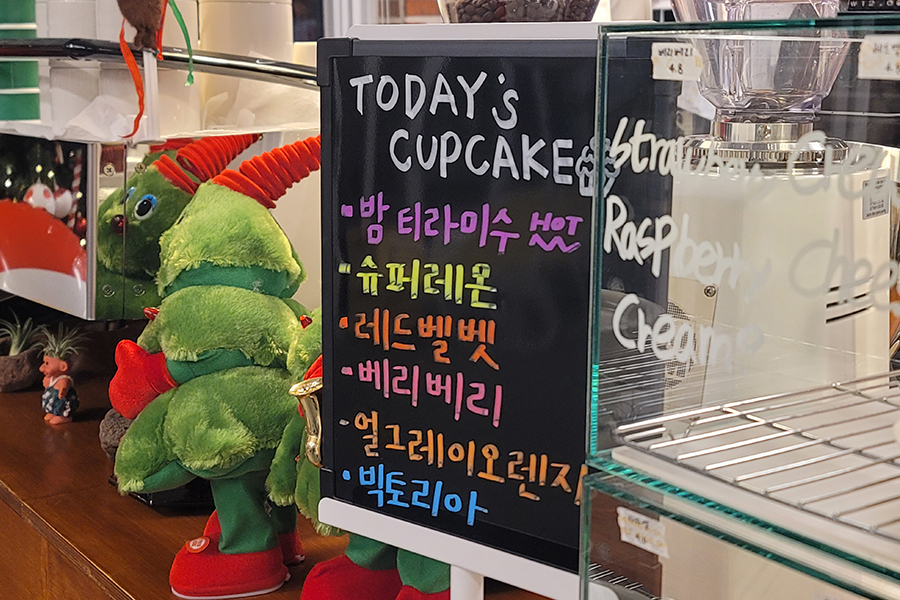 TODAY's
CUPCAKE
- 밤 티라미수 HOT
- 슈퍼레몬
- 레드벨벳
- 베리베리
- 얼그레이오렌지
- 빅토리아
Raspberry
Cream
베리베리
4.8
4.8